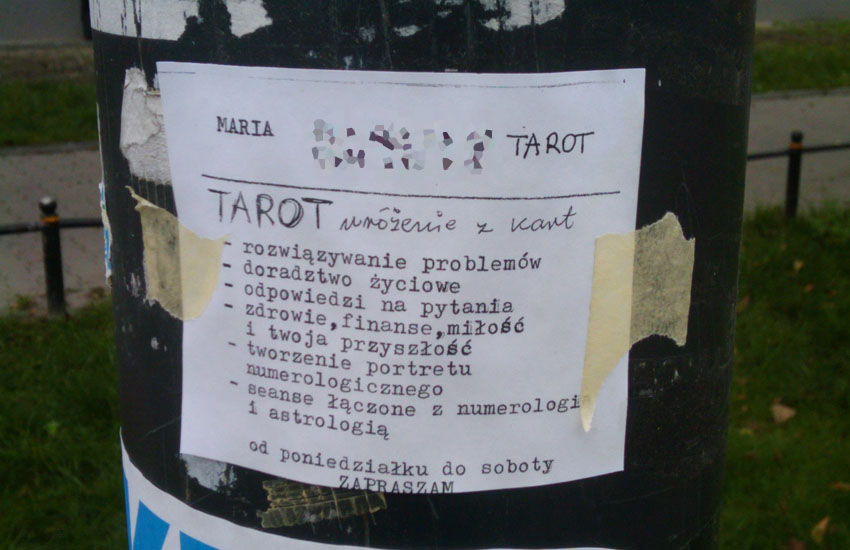 MARIA TAROT
TAROT wróżenie z kart
- rozwiązywanie problemów
- doradztwo życiowe
- odpowiedzi na pytania
- zdrowie,finanse,miłość
i twoja przyszłość
- tworzenie portretu
numerologicznego
- seanse łączone z numerologi
i astrologią
od poniedziałku do soboty
ZAPRASZAM